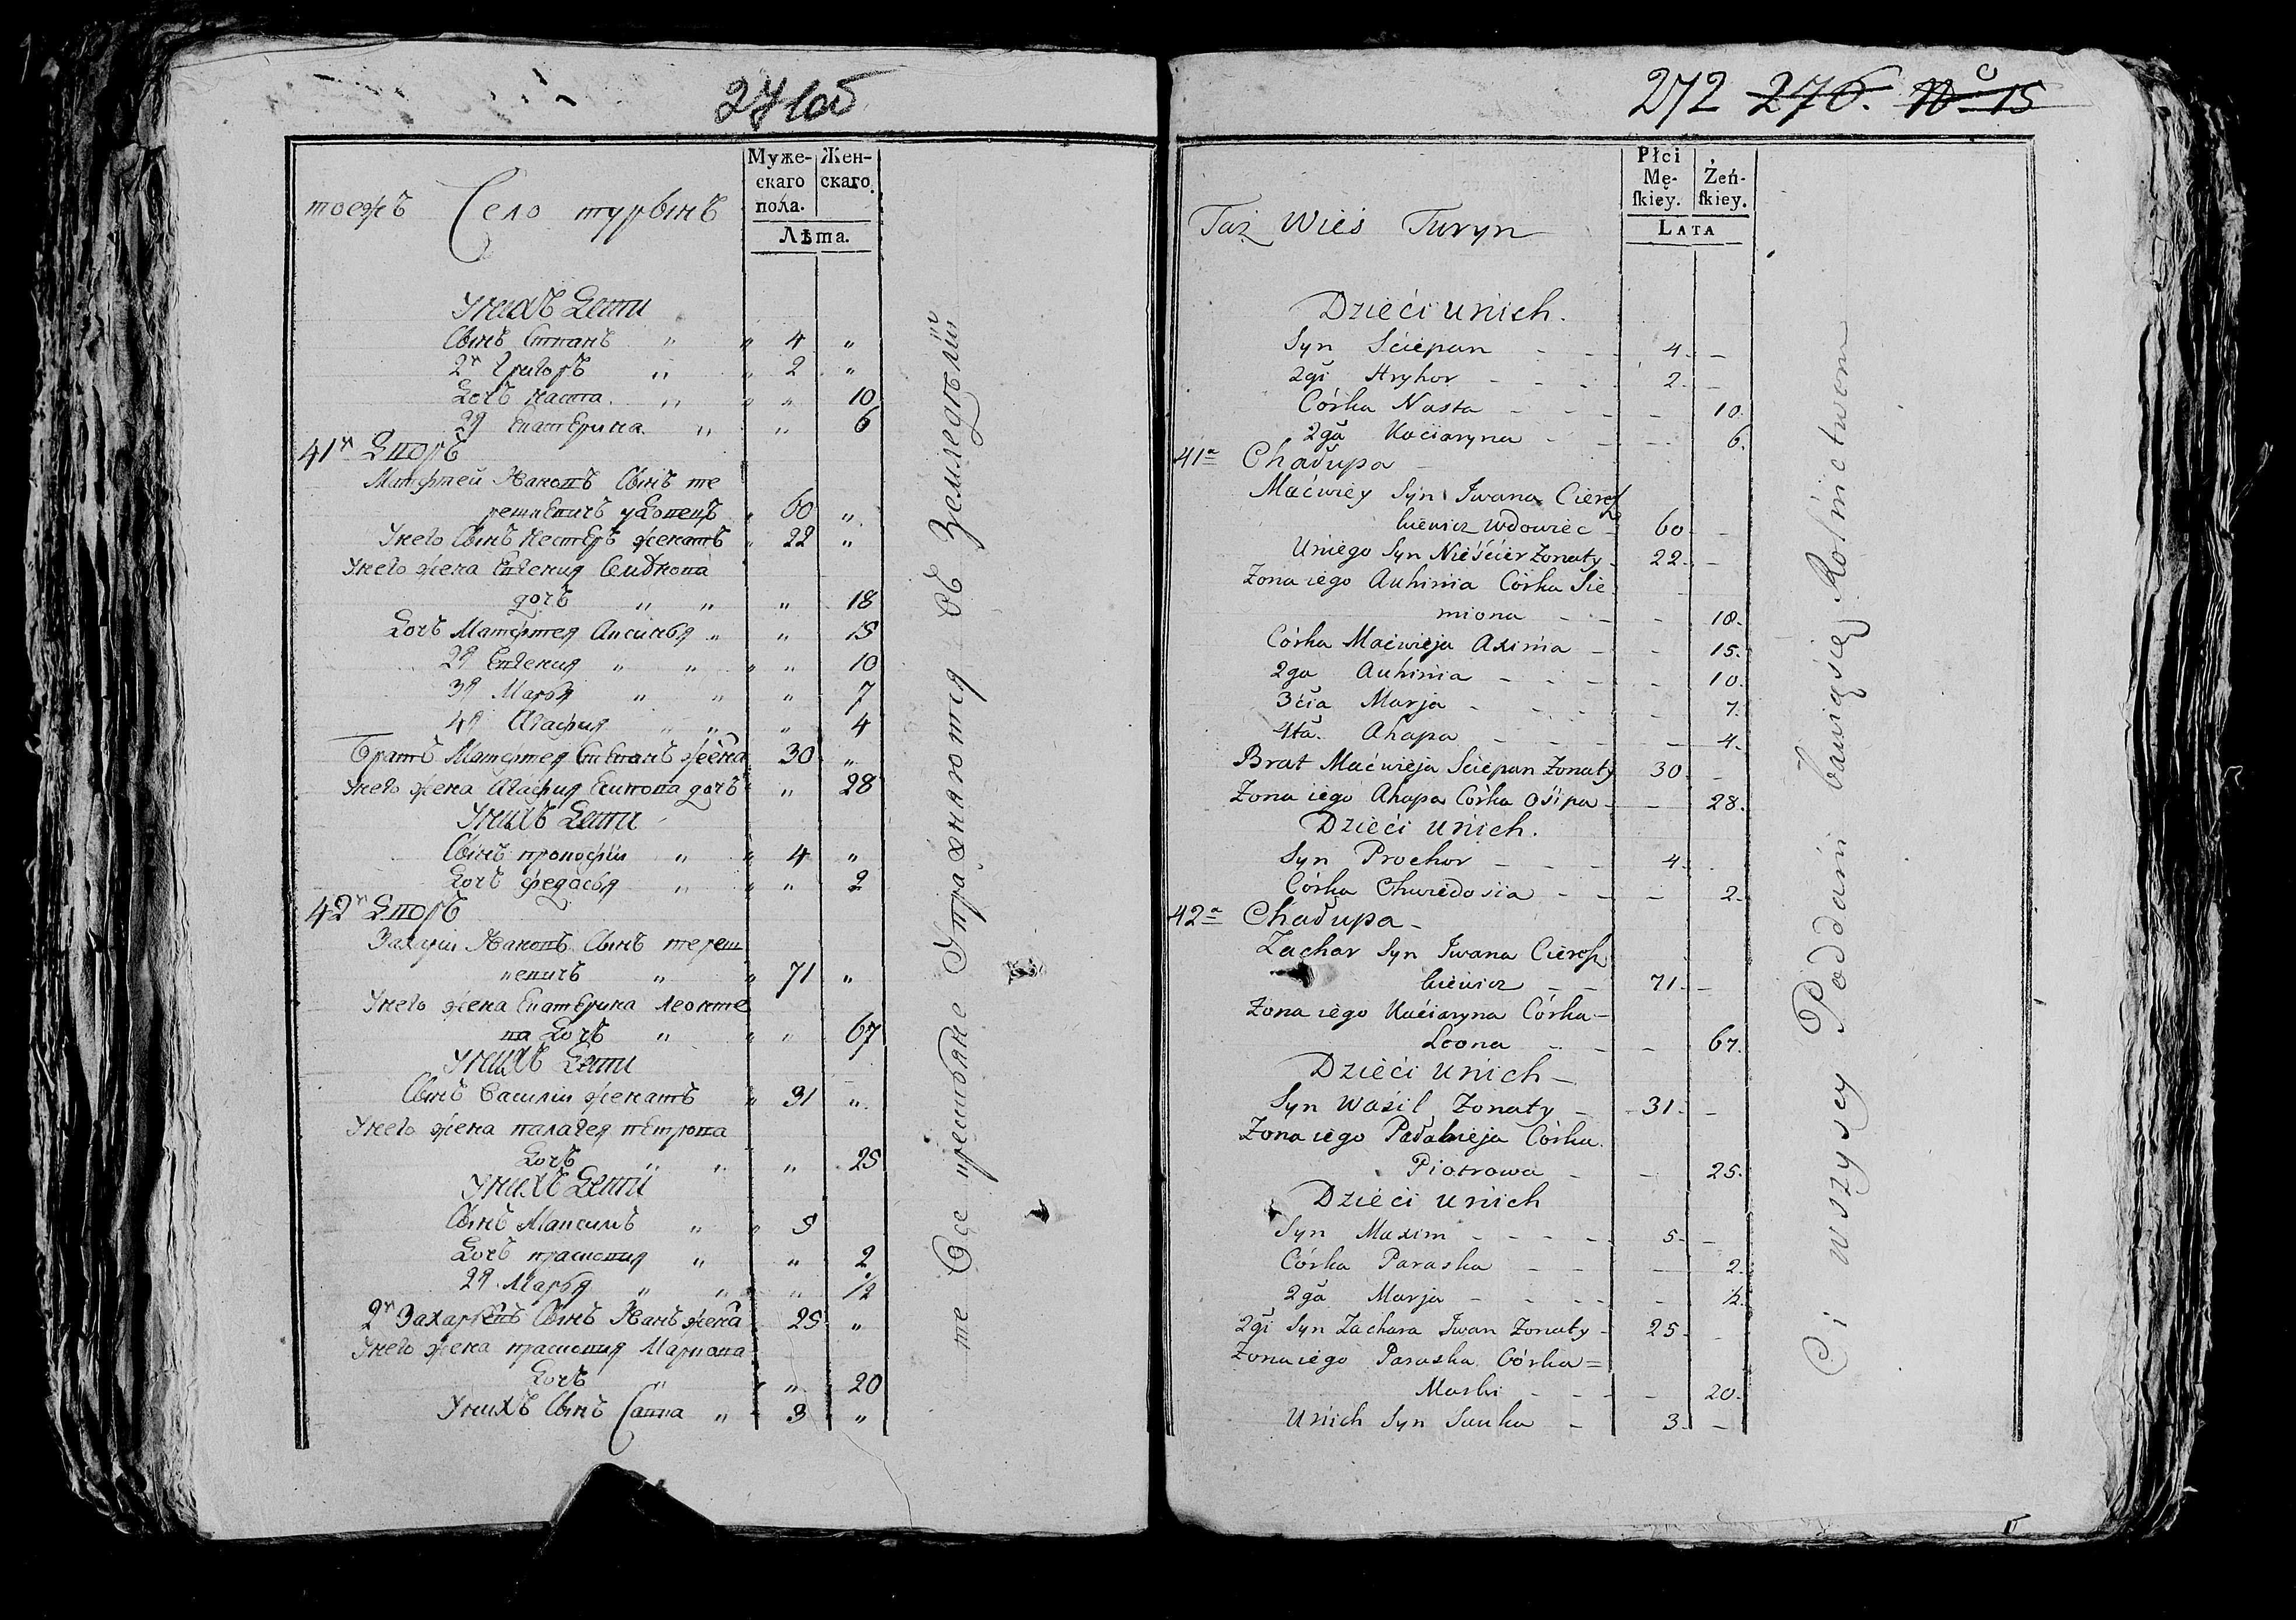 271об
тоежъ Село турынъ
Мужескаго пола.
Женскаго
Лѣта.
Унихъ Дети
Сынъ Степанъ " " 4 "
2й Григоръ " " 2 "
Дочь Наста " " " 10
2я Екатерина " " 6
41й Дворъ
Матфей Ивановъ Сынъ те
решкевичъ удовецъ " 60 "
Унего Сынъ Нестеръ женатъ " 22 "
Унего жена Евгения Семионова
дочь " " " 18
Дочь Матфтея Аксинья " " 15
2я Евгения " " " " 10
3я Марья " " " 7
4я Агафия " " " 4
Братъ Матфтея Степанъ жена 30 "
Унего жена Агафия дочь " " 28
Унихъ Дети
Сынъ прокофии " " 4 "
Дочь федосья " " " 2
42й Дворъ
Захарии Ивановъ Сынъ тереш
кевичъ " " 71 "
Унего жена Екатерина леонте
ва Дочь " " " 67
Унихъ Дети
Сынъ Василии женатъ " 31 "
Унего жена палагея петрова
Дочь " " " 25
Унихъ Дети
Сынъ Максимъ " " 5
Дочь прасковия " " 2
2я Марья " " " 1/2
2й Захаровъ Сынъ Иванъ жена 25 "
Унего жена прасковия Маркова
Дочь " " 20
Унихъ Сынъ Савка " " 3 "
те Все крестьяне Упражняются Въ Земледѣлiи
272 276. No 15
Taż Wieś Turyn
Płci Męſkiey.
Żeńſkiey.
LATA
Dzieći unich.
Syn Sciepan - - 4. -
2gi Hryhor - - - 2. -
Córka Nasta - - - - 10.
2ga Kaciaryna - - - 6.
41a Chałupa -
Maćwiey Syn Iwana Cieresz
kiewicz Wdowiec - 60 -
Uniego Syn Nieścier Żonaty - 22. -
Żona iego Auhinia Córka Sie
miona - - - 18.
Córka Maćwieja Axinia - - 15.
2ga Auhinia - - - - 10.
3cia Marja - - - - 7.
4ta. Ahapa - - - - 4.
Brat Maćwieja Sciepan Żonaty 30. -
Żona iego Ahapa Córka Osipa - - 28.
Dzieći unich.
Syn Prochor - - - 4. -
Córka Chwiedosia - - - 2.
42a Chałupa -
Zachar Syn Iwana Cieresz
kiewicz - - 71. -
Żona iego Kaciaryna Córka -
Leona - - - 67.
Dzieći unich -
Syn Wasil Żonaty - 31. -
Żona iego Pałahieja Córka
Piotrowa - - 25.
Dzieći unich
Syn Maxim - - - - 5. -
Córka Paraska - - - 2.
2ga Marja - - - - - 1/2.
2gi Syn Zachara Iwan Żonaty - 25. -
Żona iego Paraska Córka =
Marki - - - - 20.
Unich Syn Sauka - 3. -
Ci wszyscy Poddani bawią się Rolnictwem